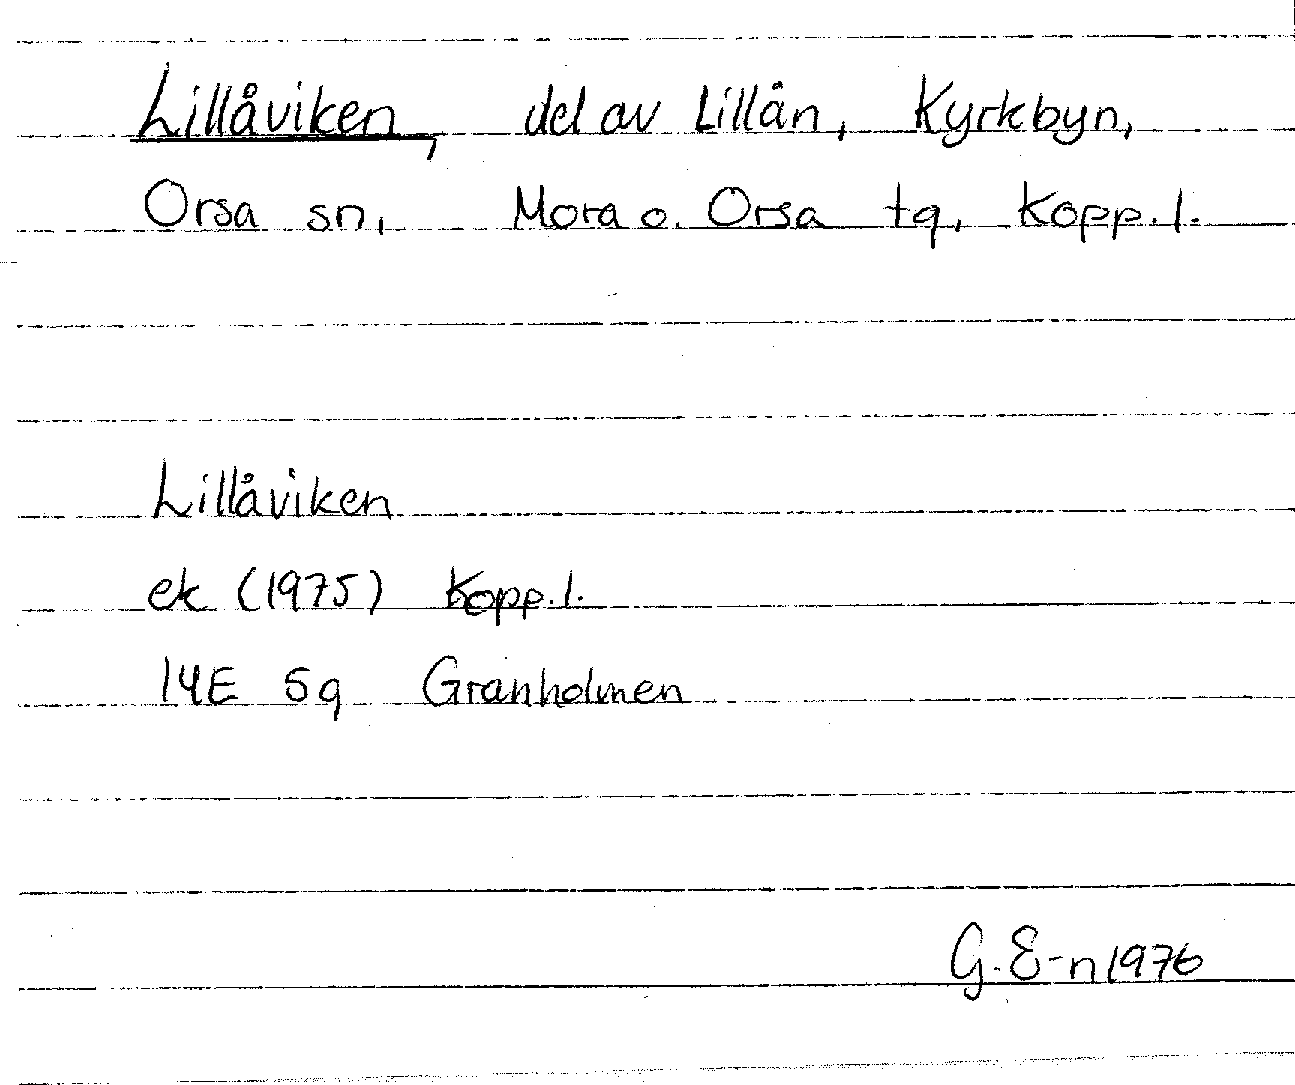 Lillåviken, del av Lillån, Kyrkbyn,
Orsa sn, Mora o. Orsa tg, Kopp. l.
Lillåviken
ek (1975) Kopp. l.
14E 5g Granholmen
G. E-n 1976